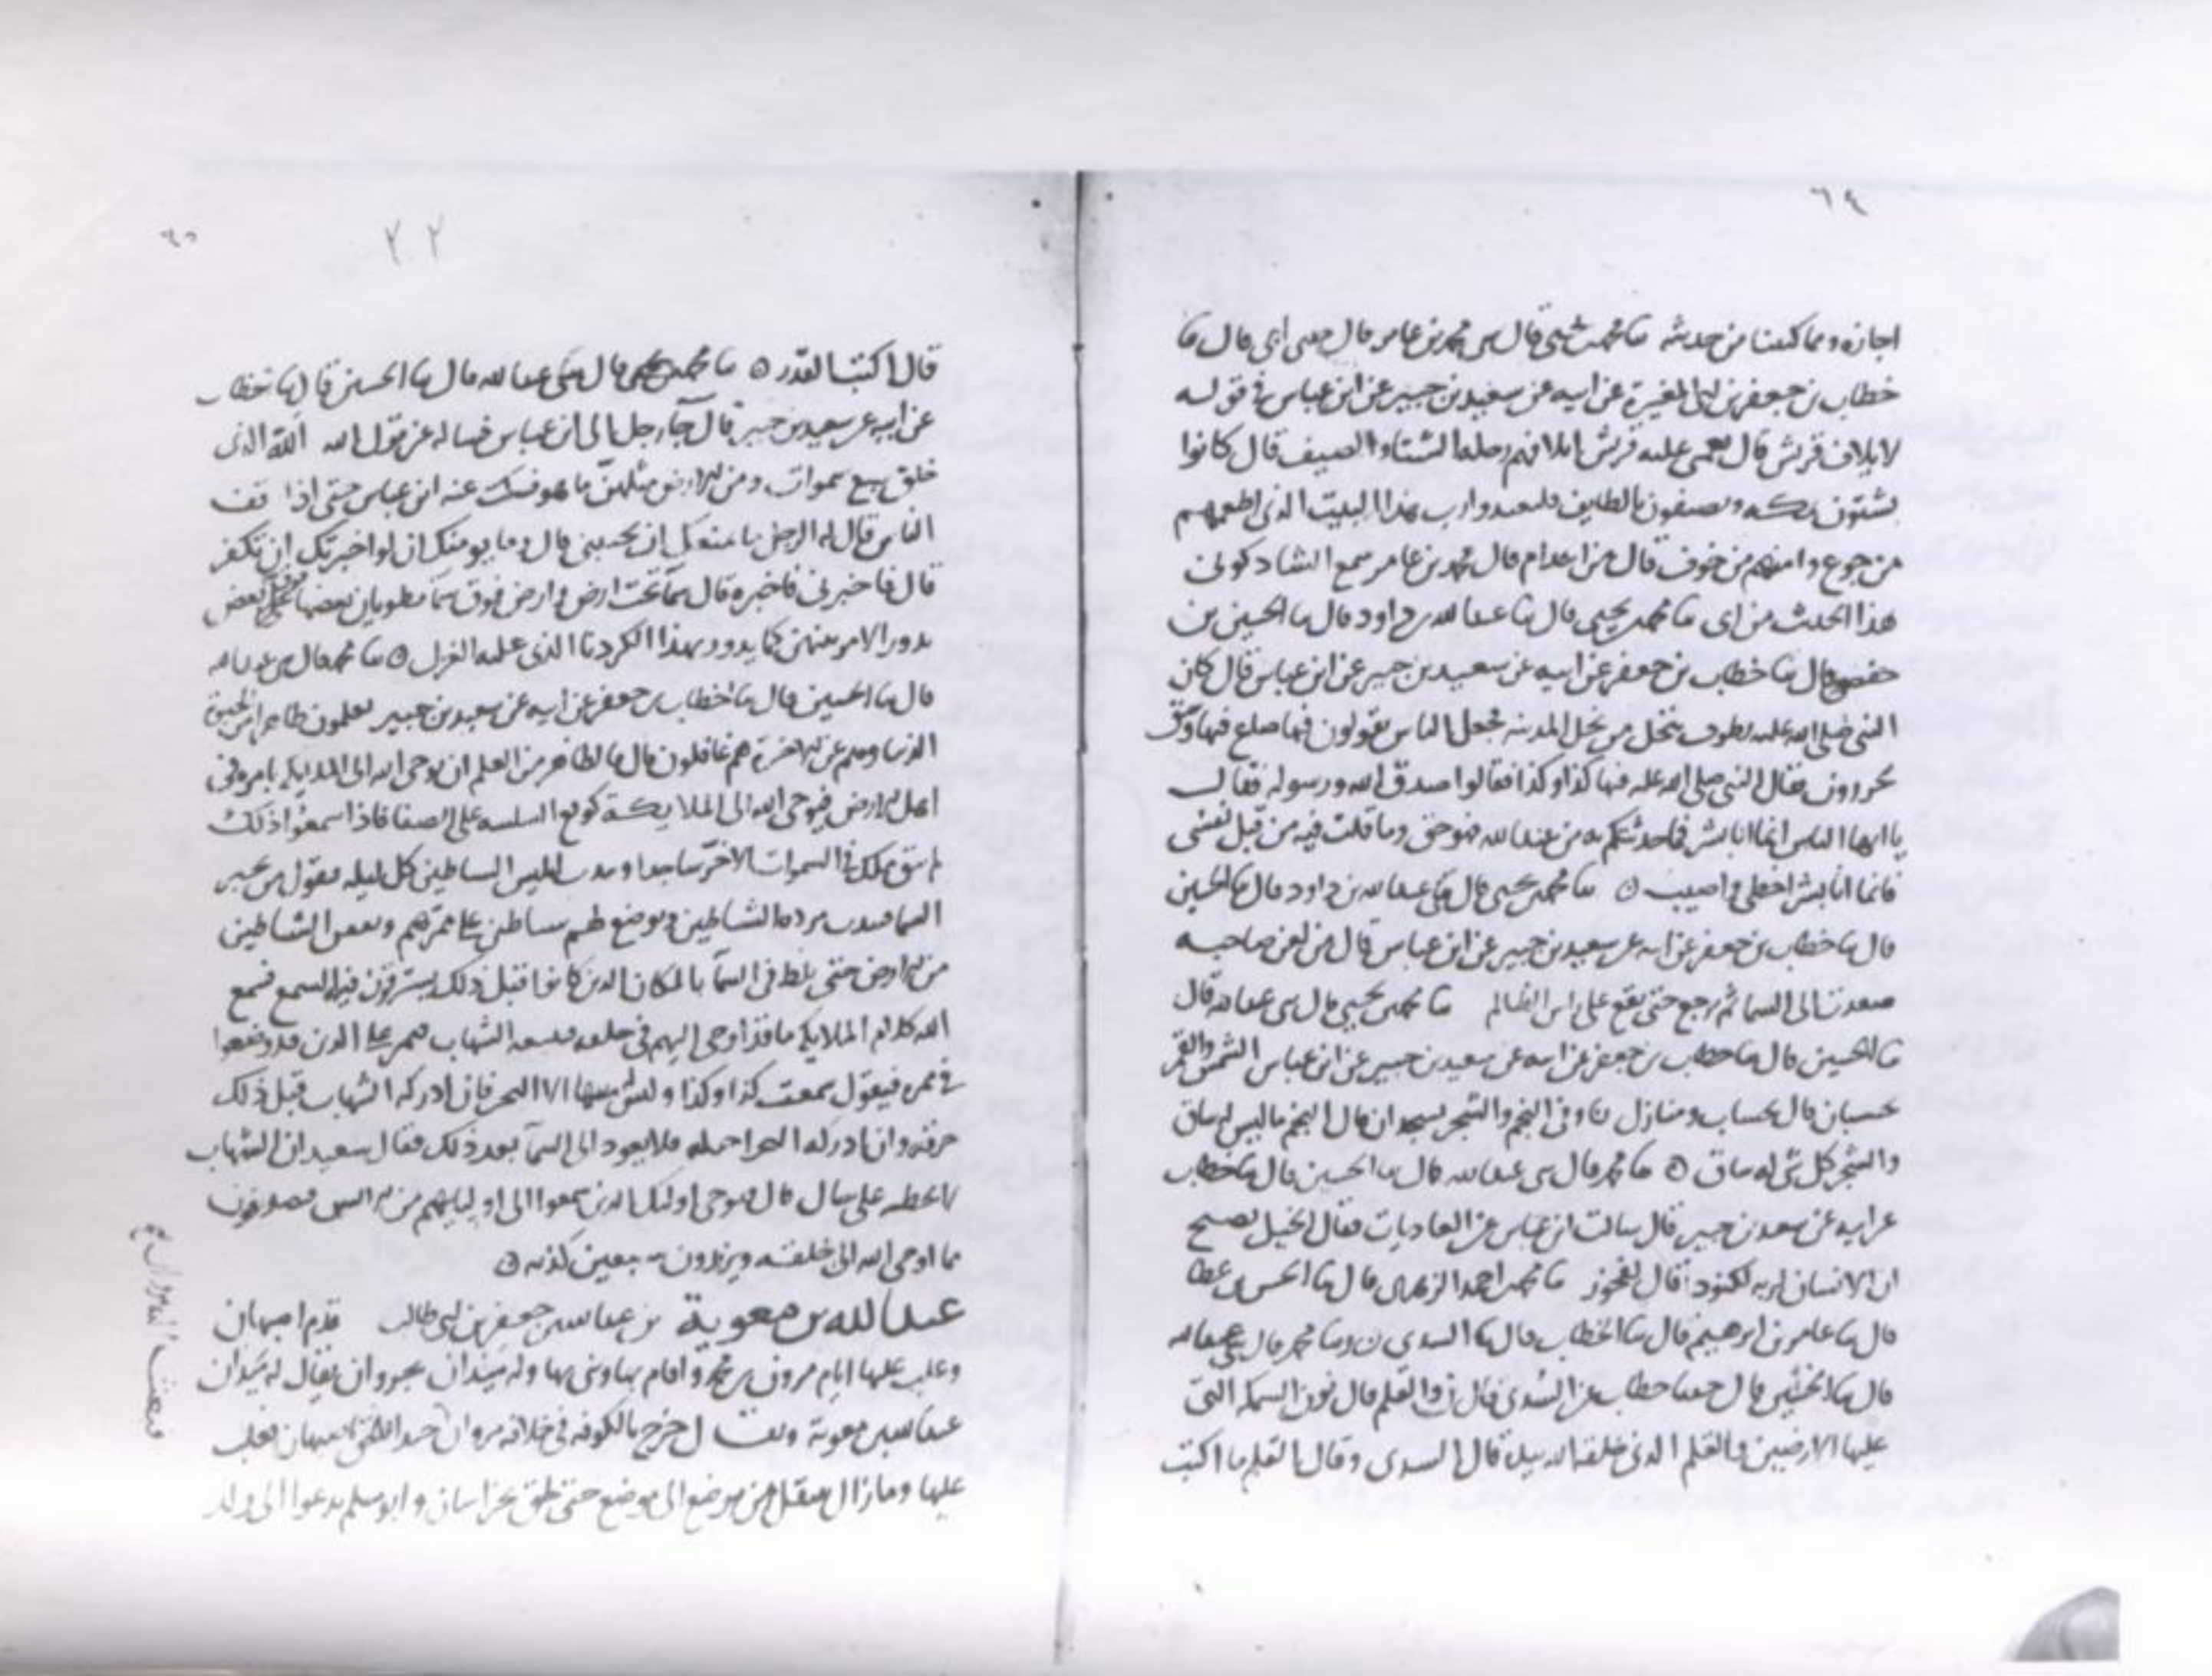 ٦٤
اجازه ومما كتبنا من حديثه ثنا محمد بن يحيى قال ثنا محمد بن عامر قال حدثني ابي قال ثنا
خطاب بن جعفر بن ابي المغيرة عن ابيه عن سعيد بن جبير عن ابن عباس في قوله
لايلاف قريش قال نعمتي على قريش ايلافهم رحلة الشتا والصيف قال كانوا
يشتون بمكه ويصيفون بالطايف فليعبدوا رب هذا البيت الذي اطعمهم
من جوع وامنهم من خوف قال من الجذام قال محمد بن عامر سمع الشاذكوني
هذا الحديث من ابي ثنا محمد بن يحيى قال ثنا عبد الله بن داود قال ثنا الحسين بن
حفص قال ثنا خطاب بن جعفر عن ابيه عن سعيد بن جبير عن ابن عباس قال كان
النبي صلى الله عليه يطوف بنخل من نخل المدينه فجعل الناس يقولون فيها صاع فيها وسق
يحزرون فقال النبي صلى الله عليه فيها كذا وكذا فقالوا صدق الله ورسوله فقال
يا ايها الناس انما انا بشر فما حدثتكم به من عند الله فهو حق وما قلت فيه من قبل نفسي
فانما انا بشر اخطي واصيب ٥ ثنا محمد بن يحيى قال ثنا عبد الله بن داود قال ثنا الحسين
قال ثنا خطاب بن جعفر عن ابيه عن سعيد بن جبير عن ابن عباس قال من لعن صاحبه
صعدت الى السما ثم رجع حتى يقع على راس الظالم ثنا محمد بن يحيى قال ثنى عبد الله قال
ثنا الحسين قال ثنا خطاب بن جعفر عن ابيه عن سعيد بن جبير عن ابن عباس الشمس والقمر
بحسبان قال بحساب ومنازل وفي النجم والشجر يسجدان قال النجم ما ليس له ساق
والشجر كل شي له ساق ٥ ثنا محمد قال ثنى عبد الله قال ثنا الحسين قال ثنا خطاب
عن ابيه عن سعيد بن جبير قال سالت ابن عباس عن العاديات فقال الخيل تضبح
ان الانسان لربه لكنود قال لفجور ثنا محمد بن احمد الزهري قال ثنا الحسن بن عطا
قال ثنا عامر بن ابرهيم قال ثنا الخطاب قال ثنا السدي وثنا محمد قال ثنى عبد الله
قال ثنا الحسين قال حدثنا خطاب عن السدي قال ن والقلم قال نون السمكه التي
عليها الارضين والقلم الذي خلقه الله بيده قال السدي وقال القلم ما اكتب
٦٥
٢٠٢
قال اكتب القدر ٥ ثنا محمد بن يحيى قال ثنى عبد الله قال ثنا الحسين قال ثنا خطاب
عن ابيه عن سعيد بن جبير قال جآ رجل الى ابن عباس فساله عن قول الله الله الذي
خلق سبع سموات ومن الارض مثلهن ما هو فسكت عنه ابن عباس حتى اذا خف
الناس قال له الرجل ما منعك ان تجيبني قال وما يومنك ان لو اخبرتك ان تكفر
قال فاخبرني فاخبره قال سمآ تحت ارض وارض فوق سمآ مطويات بعضها فوق بعض
يدور الامر بينهن كما يدور بهذا الكردنا الذي عليه الغزل ٥ ثنا محمد قال ثنى عبد الله
قال ثنا الحسين قال ثنا خطاب بن جعفر عن ابيه عن سعيد بن جبير يعلمون ظاهرا من الحيوة
الدنيا وهم عن الاخرة هم غافلون قال ما لظاهر من العلم ان يوحي الله الى الملايكه بامره في
اهل الارض فيوحي الله الى الملايكة كوقع السلسه على الصفا فاذا سمعوا ذلك
لم يبق ملك في السموات الا خر ساجدا ابليس الشياطين كل ليله فيقول من خبر
السما مردة الشياطين ويوضع لهم شياطين على ممرهم وبعض الشياطين
من الارض حتى يلط في السمآ بالمكان الذي كانوا قبل ذلك يسترقون فيه السمع فسمع
الله كلام الملايكه ماذا اوحي اليهم في خلقه فيتبعه الشهاب فيمر على الذين قد وضعوا
في ممره فيقول سمعت كذا وكذا وليس الا البحر فان ادركه الشهاب قبل ذلك
حرقه وان ادركه البحر فلا يعود الى السمآ بعد ذلك فقال سعيد ان الشهاب
لا يخطيه على حال قال فيوحي اولئك الذين سمعوا الى اوليايهم من الانس فيصدقون
مما اوحى الله الى خلقه ويزيدون سبعين كذبه ٥
عبد الله بن معوية بن عبد الله بن جعفر بن ابي طالب قدم اصبهان
وغلب عليها ايام مرون بن محمد واقام بها وبنى بها وله ميدان بجروان يقال له ميدان
عبد الله بن معوية ويقال خرج بالكوفه في خلافة مروان اصبهان فغلب
عليها وما زال ينتقل من موضع الى موضع حتى لحق بخراسان وابو مسلم يدعوا الى ولد